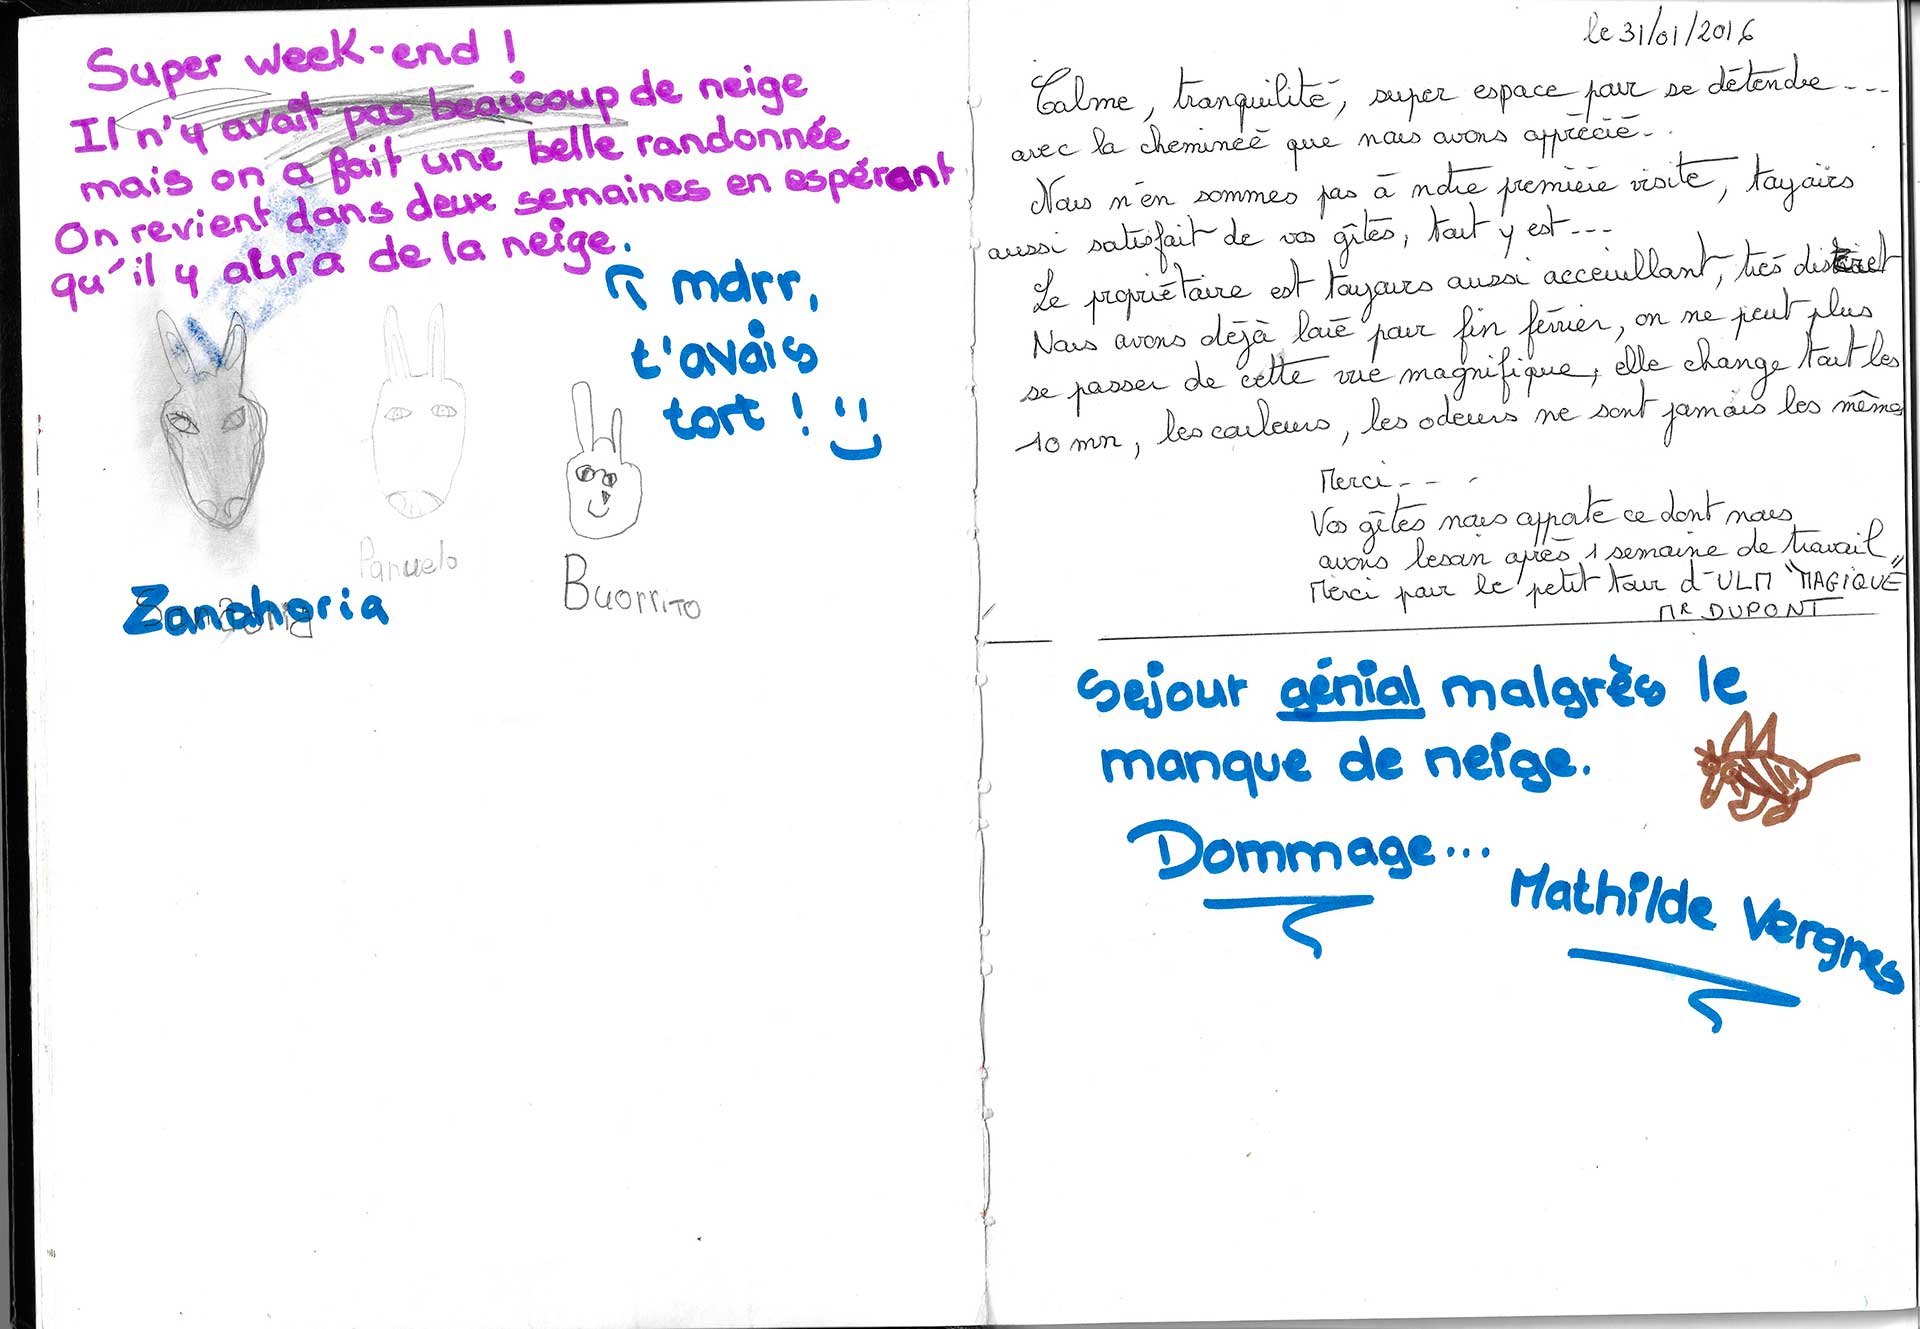 Super week-end !
Il n'y avait pas beaucoup de neige
mais on a fait une belle randonnée
On revient dans deux semaines en espérant
qu'il y aura de la neige.
mdrr,
t'avais
tort !
Zanahoria
Panuelo
Buorrito
le 31/01/2016
Calme, tranquilité, super espace pour se détendre ---
avec la cheminéé que nous avons apprécié..
Nous n'en sommes pas à notre première visite, toujours
aussi satisfait de vos gîtes, tout y est ---
Le propriétaire est toujours aussi acceuillant, très discret
Nous avons déjà loué pour fin février, on ne peut plus
se passer de cette vue magnifique, elle change tout les
10 mn, les couleurs, les odeurs ne sont jamais les mêmes
Merci -- -
Vos gîtes nous apporte ce dont nous
avons besoin après 1 semaine de travail
Merci pour le petit tour d'ULM "MAGIQUE"
Mr DUPONT
Sejour génial malgrès le
manque de neige.
Dommage...
Mathilde Vergnes